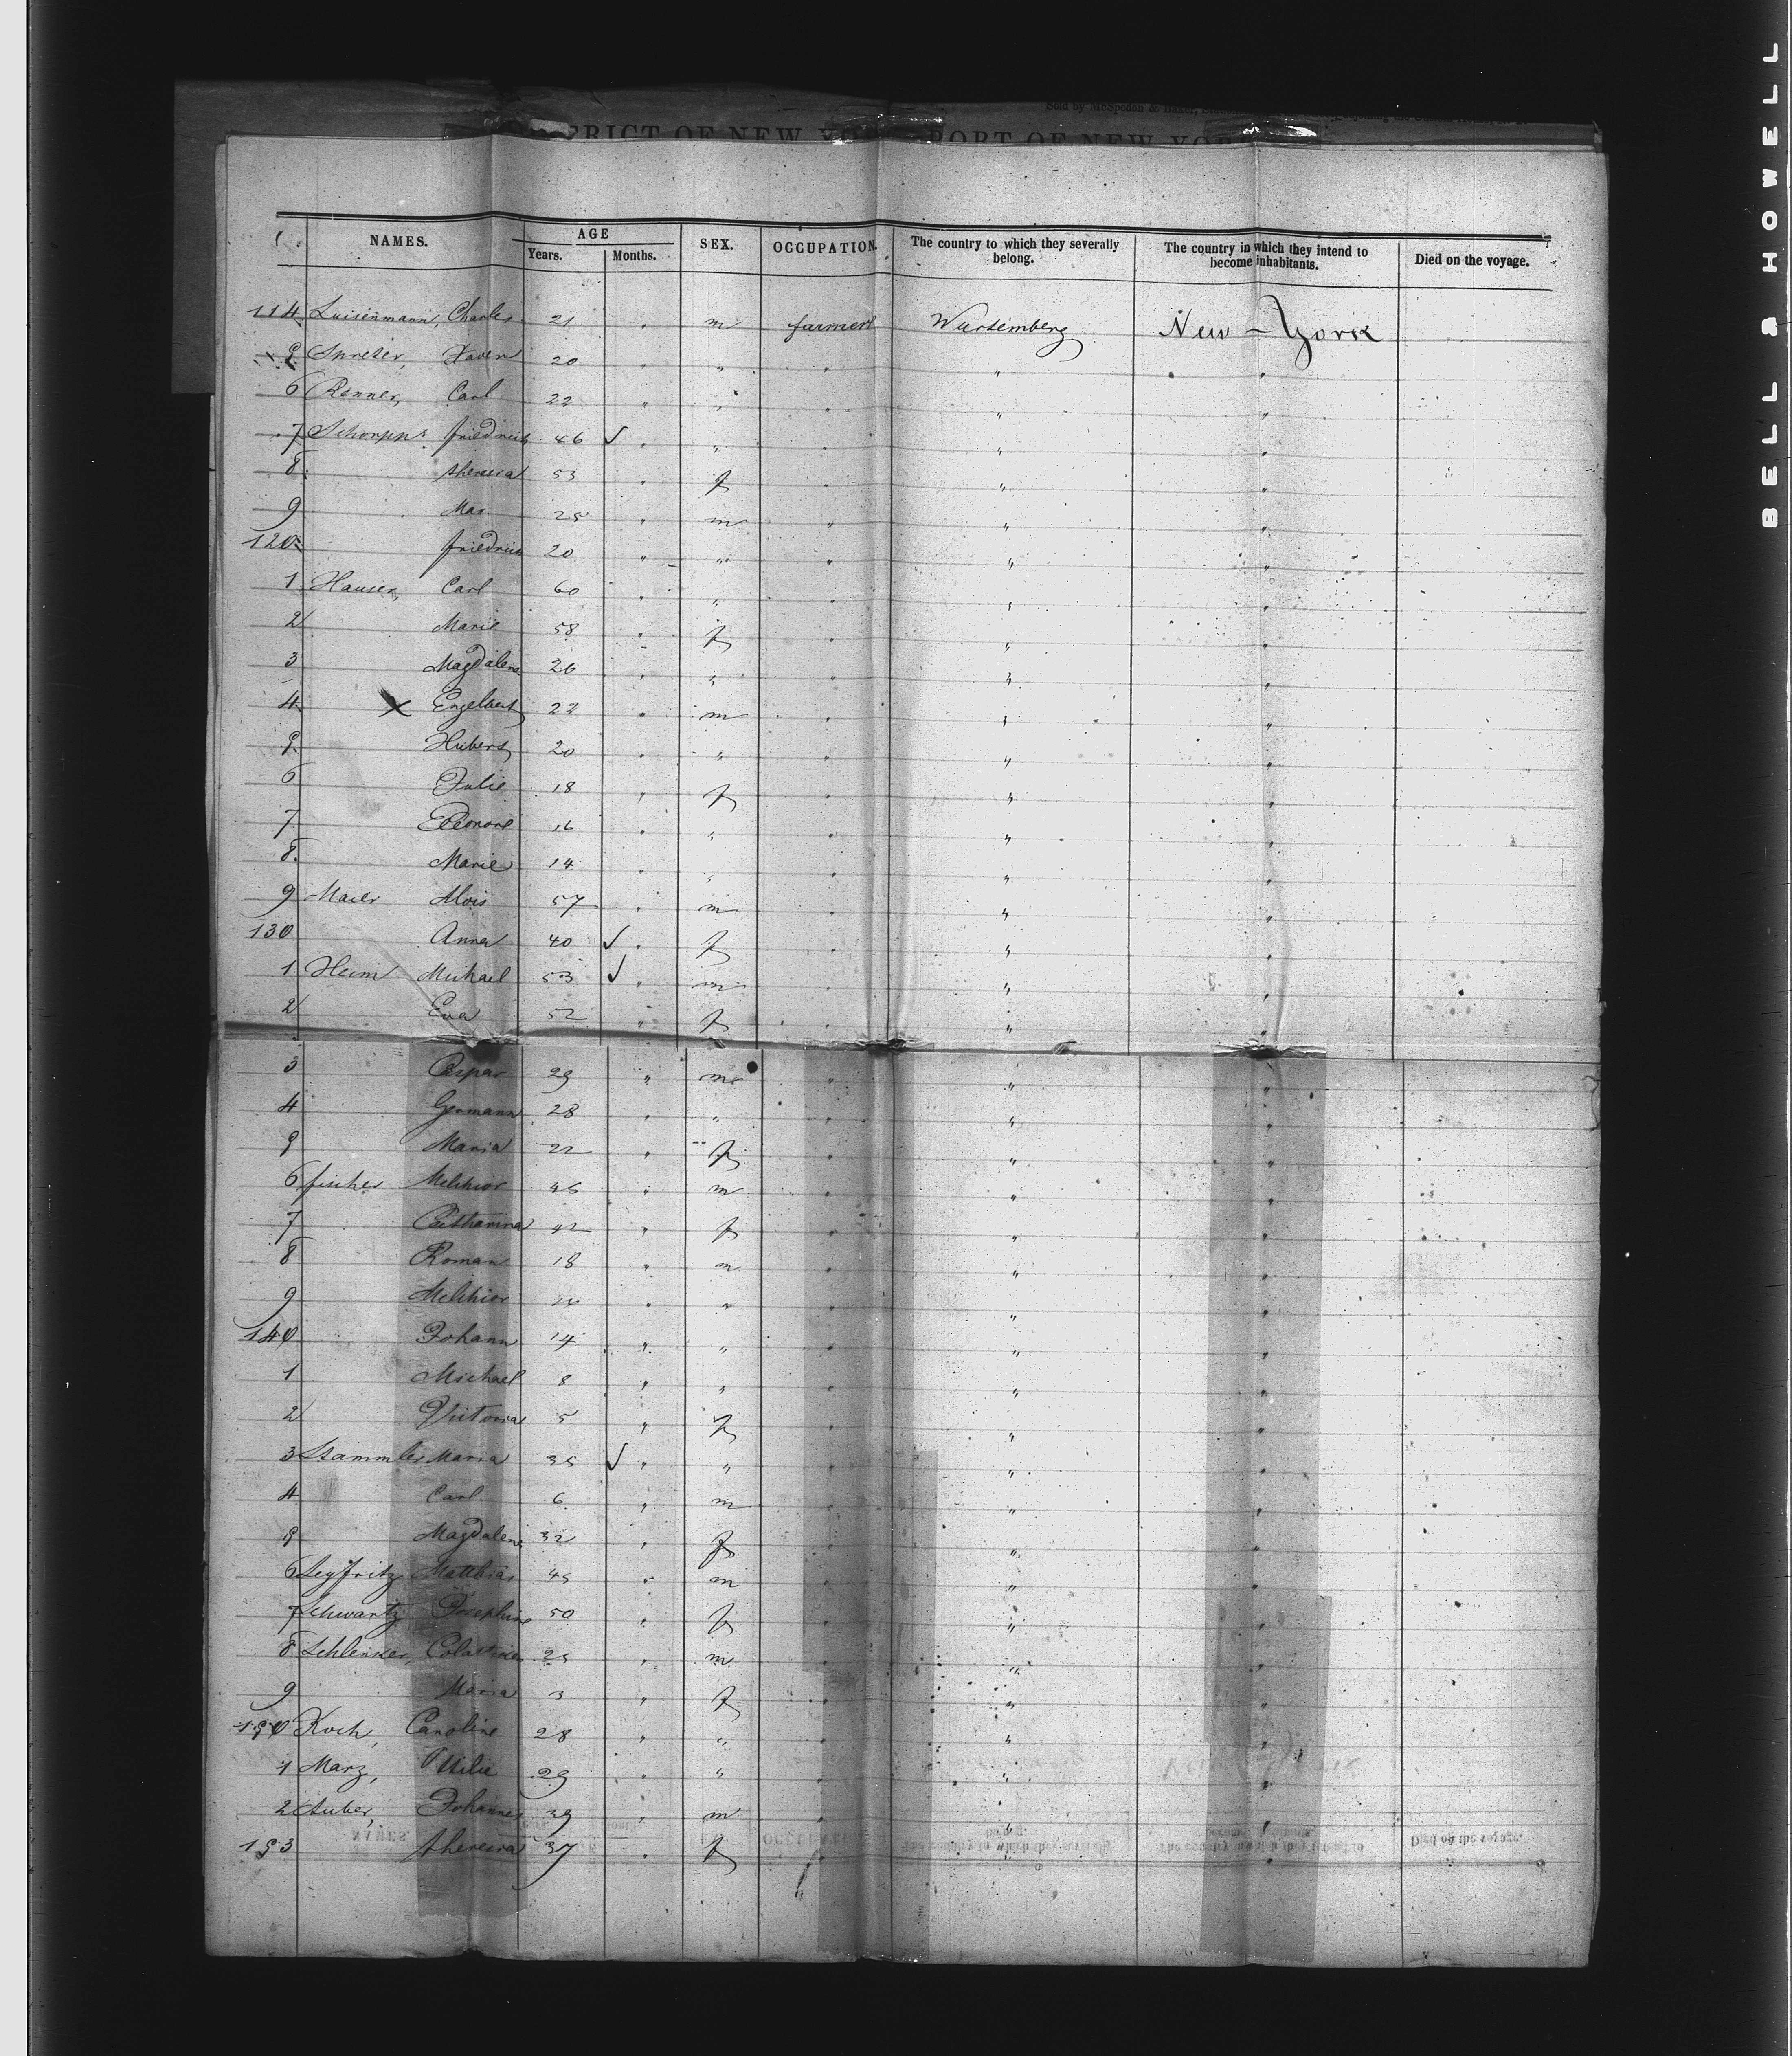 DISTRICT OF NEW YORK - PORT OF NEW YORK
NAMES. AGE Years. Months. SEX. OCCUPATION. The country to which they severally belong. The country in which they intend to become inhabitants. Died on the voyage.
114 Luisenmann, Charles 21 " m farmer Wurtemberg New-York
5 Spreter, Xaver 20 " " " " "
6 Renner, Carl 22 " " " " "
7 Friedrich 46 ✓ " " " " "
8 theresia 53 " f " " "
9 Max 25 " m " " "
120 friedrich 20 " " " " "
1 Hauser, Carl 60 " " " " "
2 Marie 58 " f " " "
3 Magdalena 26 " " " " "
4 X Engelbert 22 " m " " "
5 Hubert 20 " " " " "
6 Julie 18 " f " " "
7 Eleonore 16 " " " " "
8 Marie 14 " " " " "
9 Maier Alois 57 " m " " "
130 Anna 40 ✓ " f " " "
1 Heim Michael 53 ✓ " m " " "
2 Eva 52 " f " " "
3 Caspar 29 " m " " "
4 Germann 28 " " " " "
5 Maria 22 " f " " "
6 fischer Melchior 45 " m " " "
7 Catharina 42 " f " " "
8 Roman 18 " m " " "
9 Melchior " " " " "
140 Johann 14 " " " " "
1 Michael 8 " " " " "
2 Victoria 5 " f " " "
3 Stammler Maria 35 ✓ " " " " "
4 Carl 6 " m " " "
5 Magdalena 32 " f " " "
6 Seyfritz Matthias 45 " m " " "
7 Schwartz Josephine 50 " f " " "
8 Schlenker, 25 " m " " "
9 Maria 3 " f " " "
150 Koch, Caroline 28 " " " " "
1 Marz, Ottilie 29 " " " " "
2 Auber, Johannes 39 " m " " "
153 theresia 37 " f " " "
BELL & HOWELL